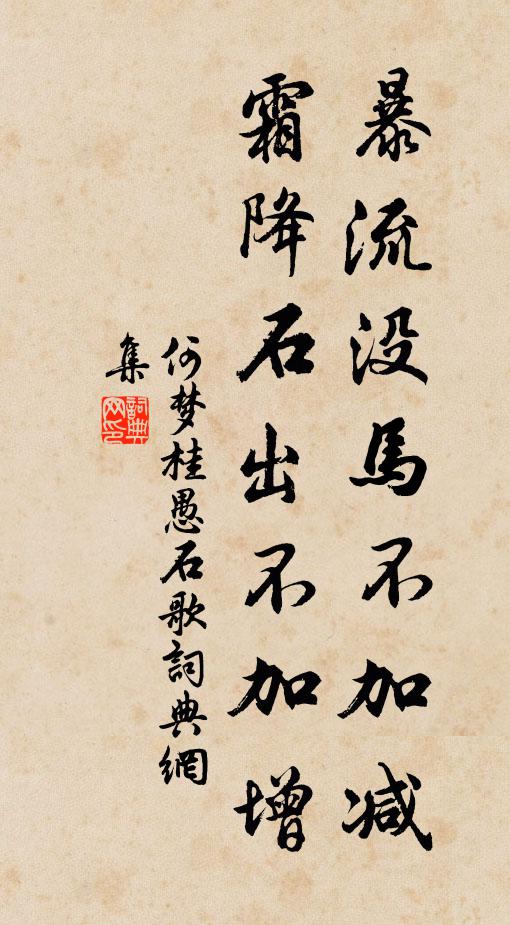 暴流没馬不加减
霜降石出不加增
何梦桂愚石歌詞典網
集
詞典網印